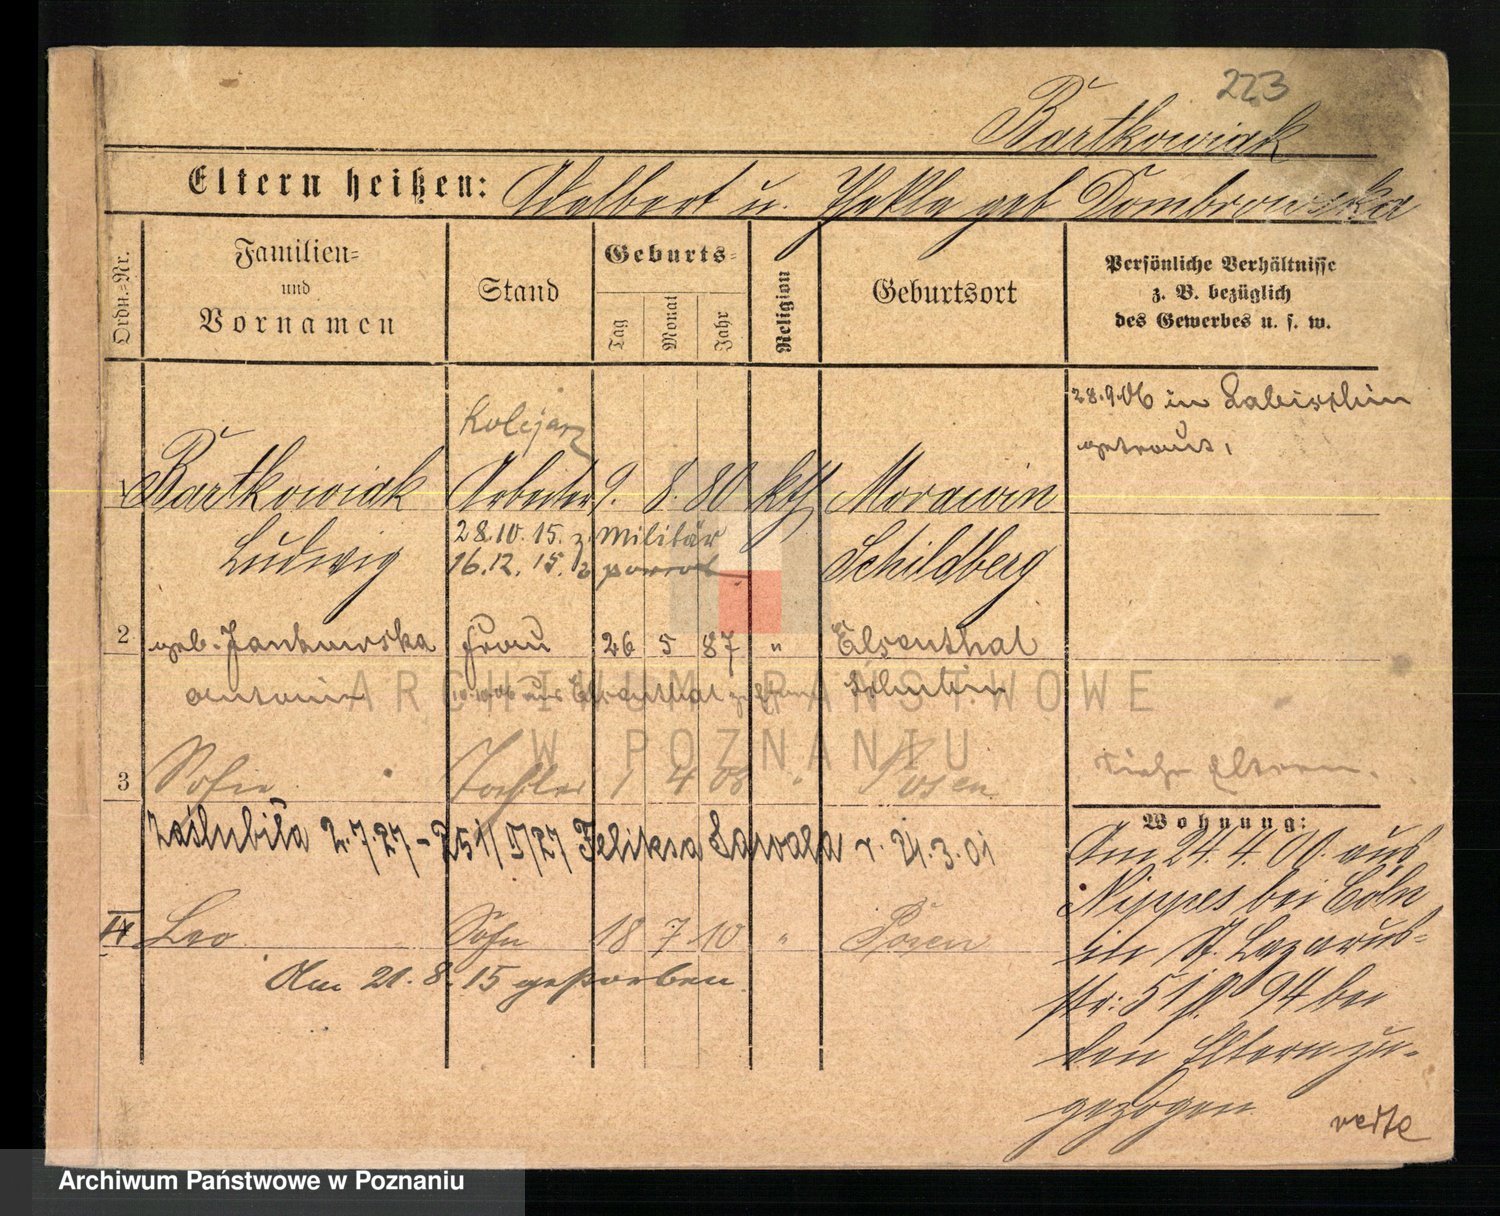 223
Bartkowiak
Eltern heißen: Adalbert u. Thekla geb Dombrowska
Ordn.-Nr.
Familien-
und
Vornamen
Stand
Geburts-
Tag
Monat
Jahr
Religion
Geburtsort
Persönliche Verhältnisse
z. B. bezüglich
des Gewerbes u. s. w.
28.9.06 in Labischin
getraut,
Kolejarz
1 Bartkowiak Arbeiter 9. 8. 80 kth Morawin
Ludwig Schildberg
28.10.15. z. Militär
16.12.15. z
2 geb. Jankowska Frau 26 5 87 " Elsenthal
Antonie Elsenthal Schubin
3 Sofie Tochter 1 4 08 " Posen
siehe Eltern.
zaślubiła 2.7.27 - 251/I/27 Feliksa Sawala r. 21.3.01
4 Leo Sohn 18 7 10 " Posen
Am 21.8.15 gestorben.
Wohnung:
Am 24.4.00. aus
Nippes bei Cöln
in St. Lazarus-
str: 51 94 bei
den Eltern zu-
gezogen
verte
ARCHIWUM PAŃSTWOWE
W POZNANIU
Archiwum Państwowe w Poznaniu